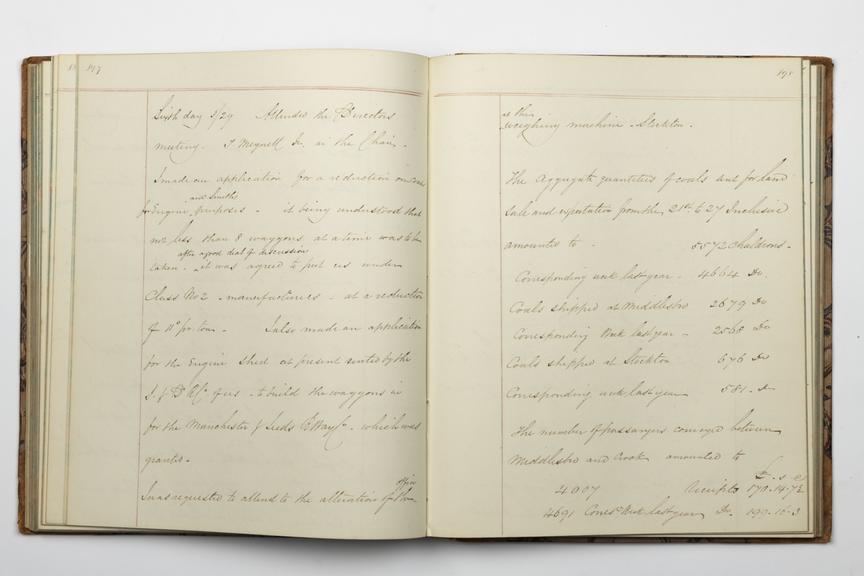 197
Sixth day 5/29 Attended the Directors
meeting. T Meynell Jr. in the Chair.
I made an application for a reduction on Coals
and Smiths
for Engine purposes - it being understood that
not less than 8 waggons at a time was to be
after a good deal of discussion
taken. it was agreed to put us under
Class No 2 - manufacturers - at a reduction
of pr ton - I also made an application
for the Engine Shed at present rented by the
S. & D R Co. of us - to build the waggons in
for the Manchester & Leeds RWay Co - which was
granted -
office
I was requested to attend to the alteration of the
198
at the
weighing machine - Stockton.
The Aggregate quantities of coals sent for land
Sale and exportation from the 21st to 27 Inclusive
amounted to - 5572 Chaldrons -
Corresponding week last year - 4664 Do.
Coals shipped at Middlesbro 2679 Do
Corresponding Week last year - 2568 Do
Coals shipped at Stockton 676 Do
Corresponding week last year 581 - Do
The number of passengers conveyed between
Middlesbro and Crook amounted to
£ . s . d
4007 Receipts 170 - 14 - 7½
4691 Corresg Week last year Do. 199 - 16 - 3